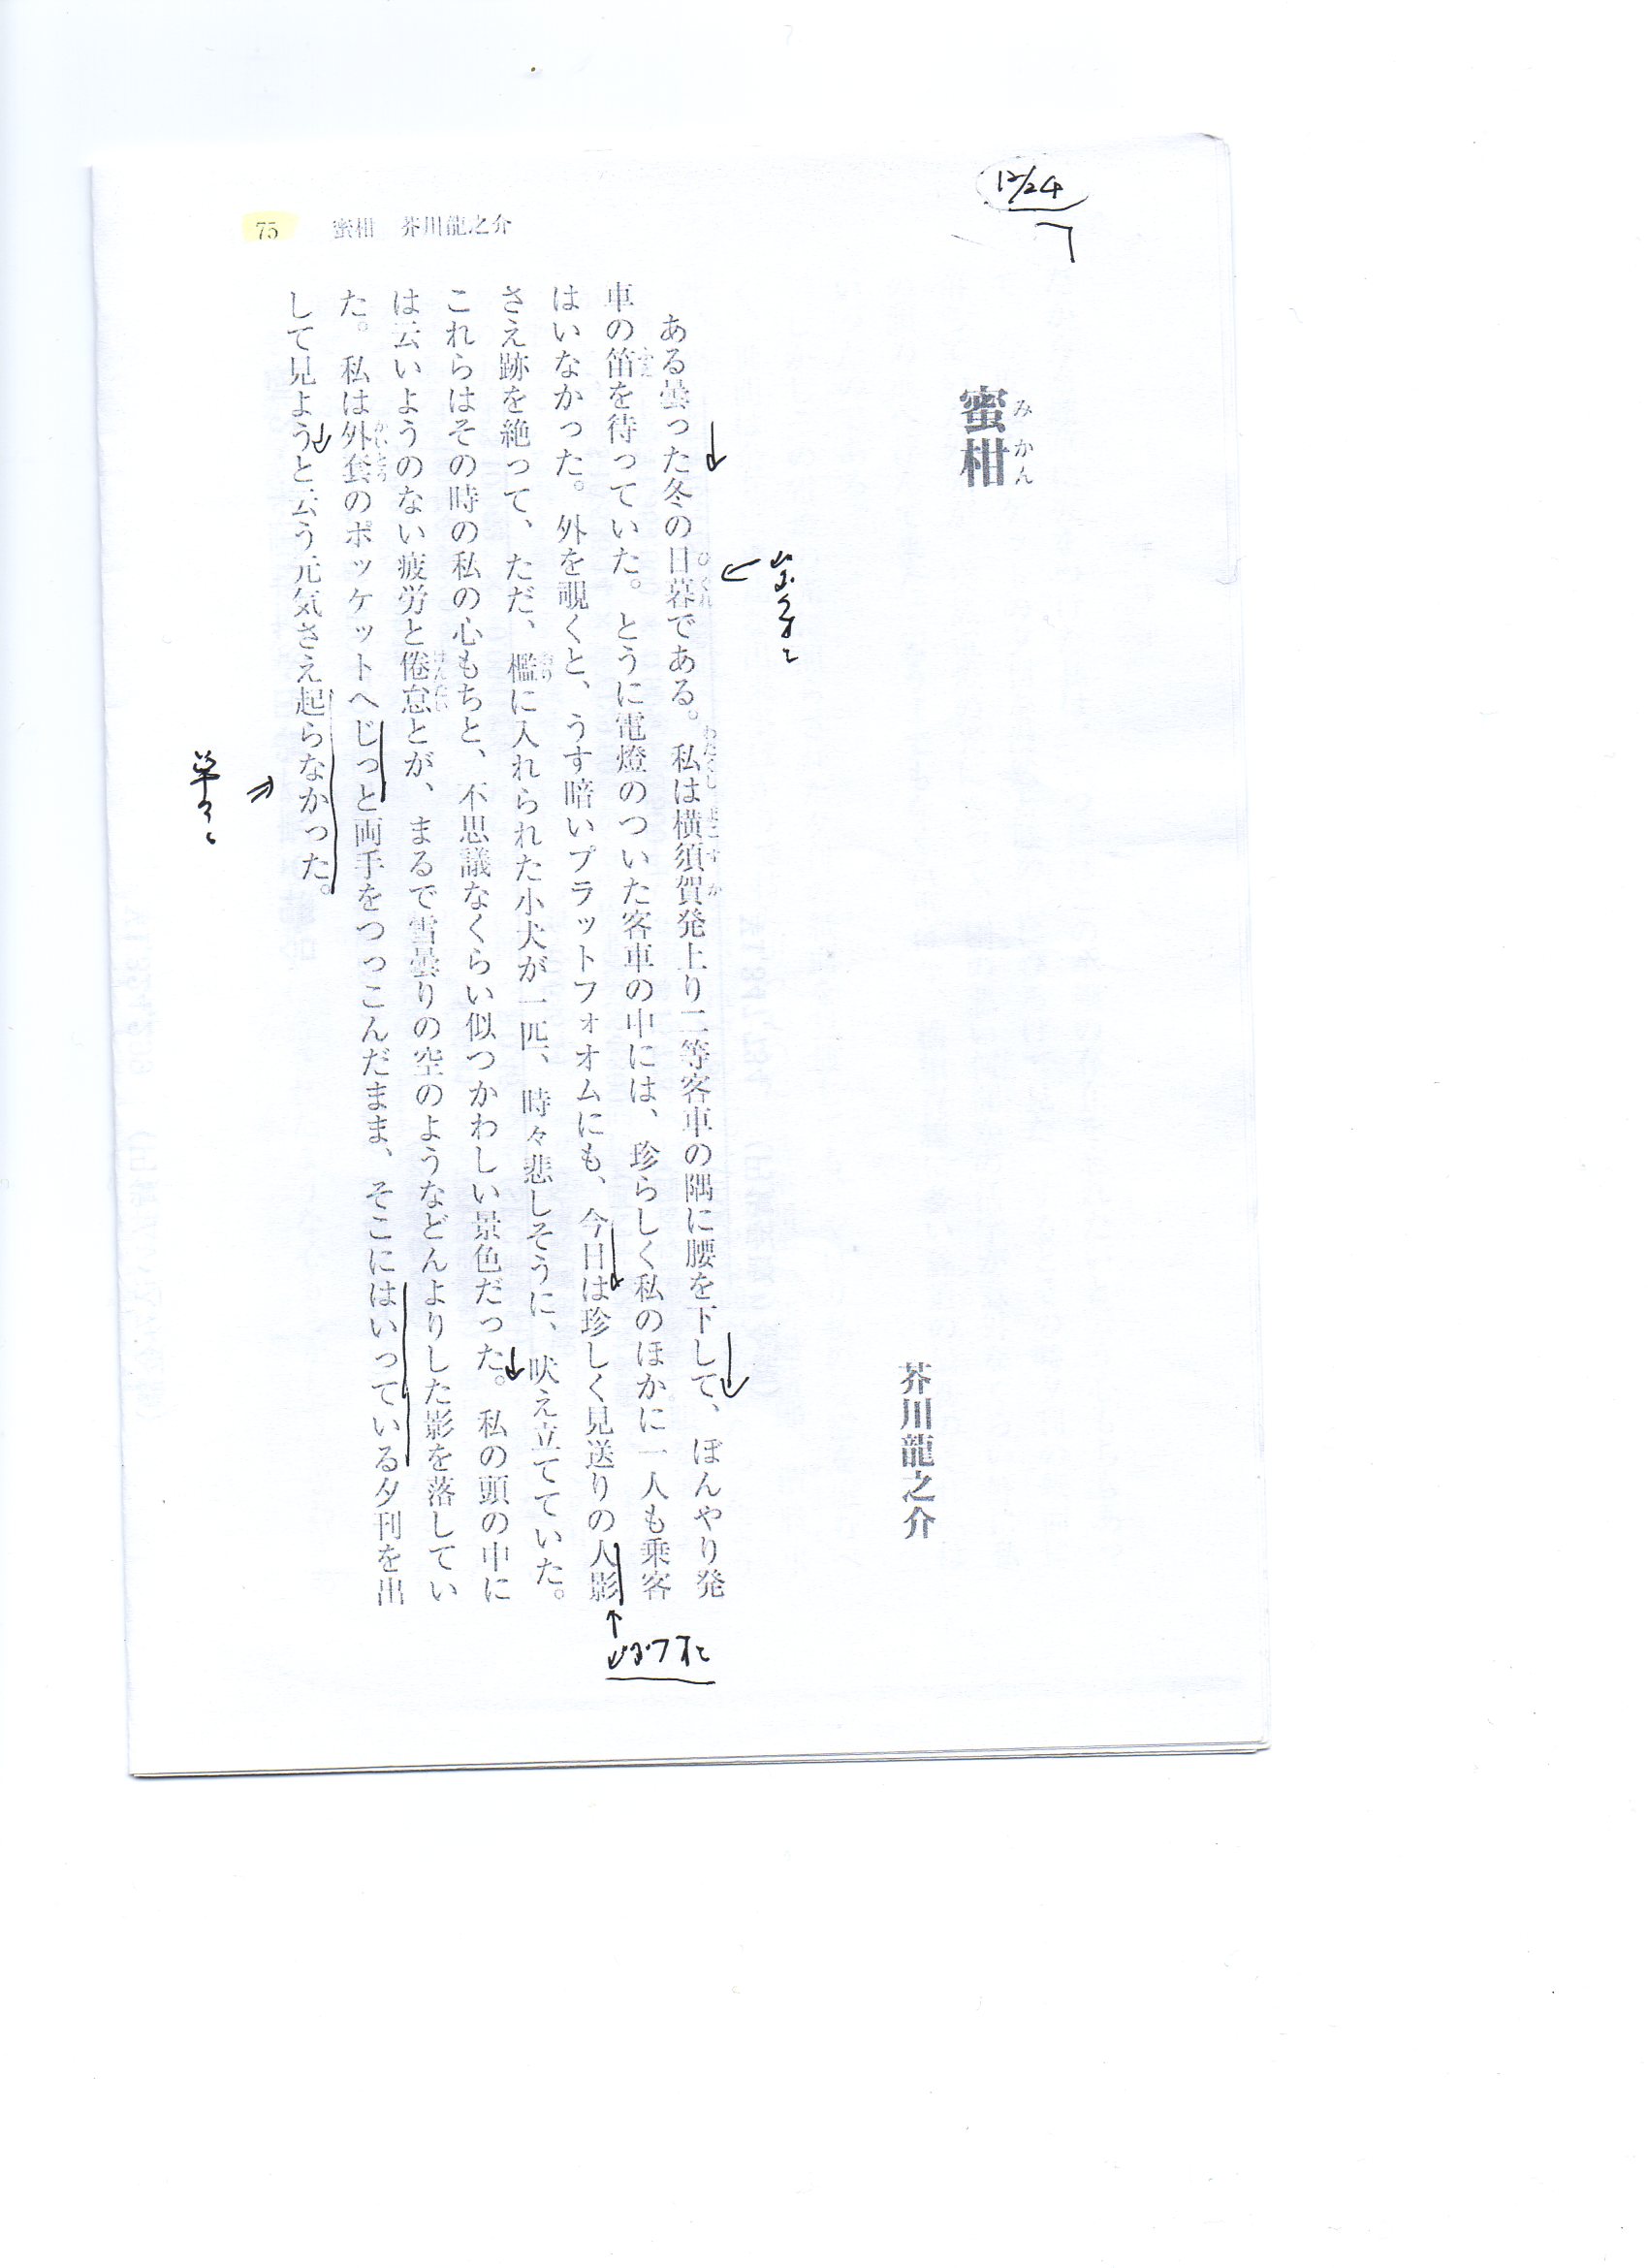 12/24
蜜柑
みかん
芥川龍之介
ある曇った冬の日暮である。私は横須賀発上り二等客車の隅に腰を下して、ぼんやり発
車の笛を待っていた。とうに電燈のついた客車の中には、珍らしく私のほかに一人も乗客
はいなかった。外を覗くと、うす暗いプラットフォオムにも、今日は珍しく見送りの人影
さえ跡を絶って、ただ、檻に入れられた小犬が一匹、時々悲しそうに、吠え立てていた。
これらはその時の私の心もちと、不思議なくらい似つかわしい景色だった。私の頭の中に
は云いようのない疲労と倦怠とが、まるで雪曇りの空のようなどんよりした影を落してい
た。私は外套のポッケットへじっと両手をつっこんだまま、そこにはいっている夕刊を出
して見ようと云う元気さえ起らなかった。
75 蜜柑 芥川龍之介